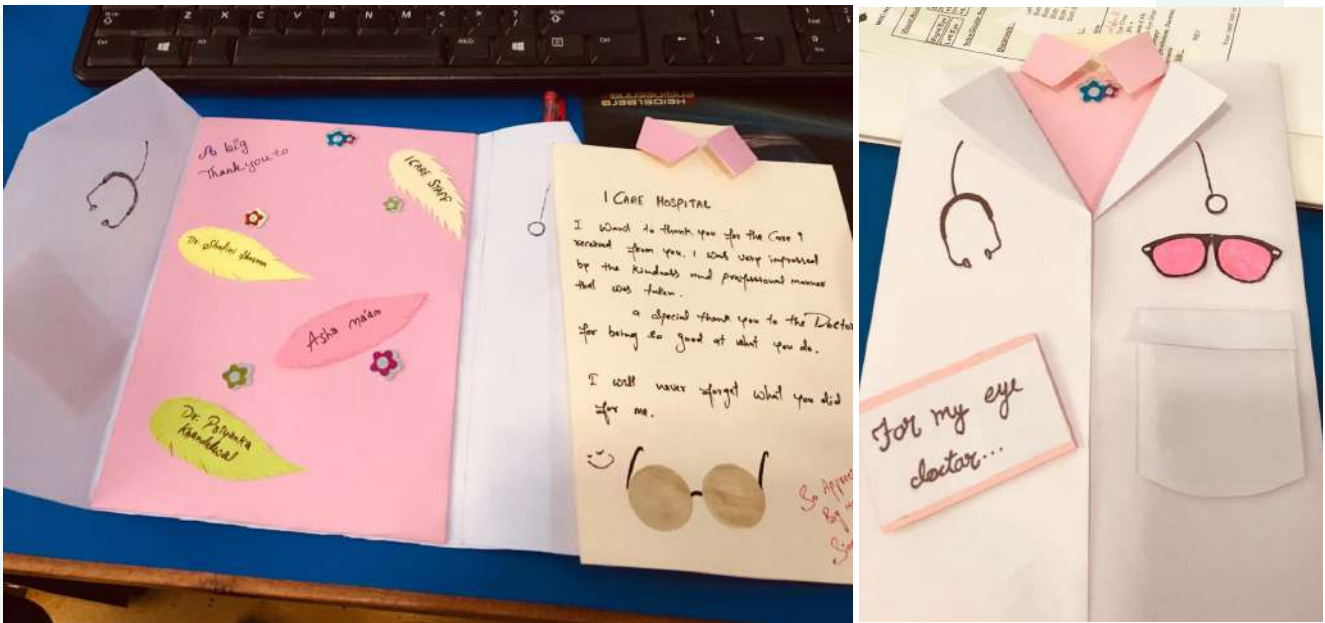 A big
Thank you to
ICARE STAFF
Dr. Shalini Sharma
Asha ma'am
Dr. Priyanka
Khandelwal
I CARE HOSPITAL
I want to thank you for the Care I
received from you. I was very impressed
by the kindness and professional manner
that was taken.
a special thank you to the Doctor
for being so good at what you do.
I will never forget what you did
for me.
So
By
For my eye
doctor...
HEIDELBERG
ENGINEERING
Z X C V B N M
Alt
Ctrl